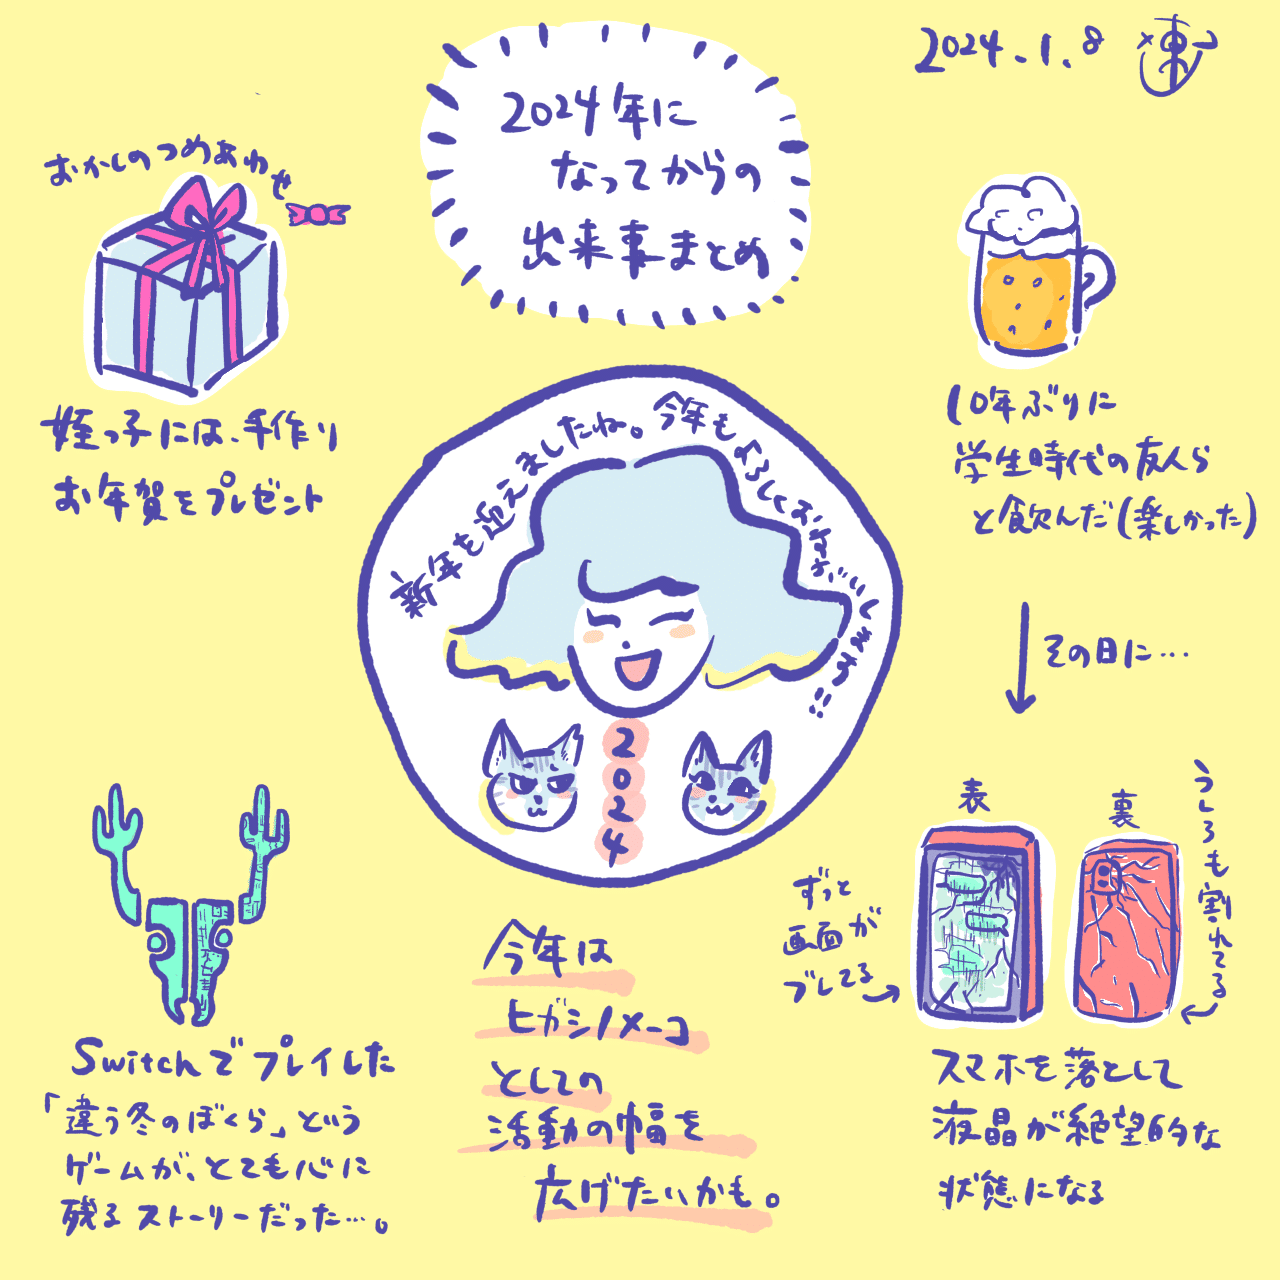 2024.1.8
2024年に
なってからの
出来事まとめ
おかしのつめあわせ
姪っ子には、手作り
お年賀をプレゼント
10年ぶりに
学生時代の友人ら
と飲んだ(楽しかった)
その日に…
新年を迎えましたね。今年もよろしくおねがいします!!
2024
表
裏
うしろも割れてる
ずっと
画面が
ブレてる
スマホを落として
液晶が絶望的な
状態になる
Switchでプレイした
「違う冬のぼくら」という
ゲームが、とても心に
残るストーリーだった…。
今年は
ヒガシノメーコ
としての
活動の幅を
広げたいかも。